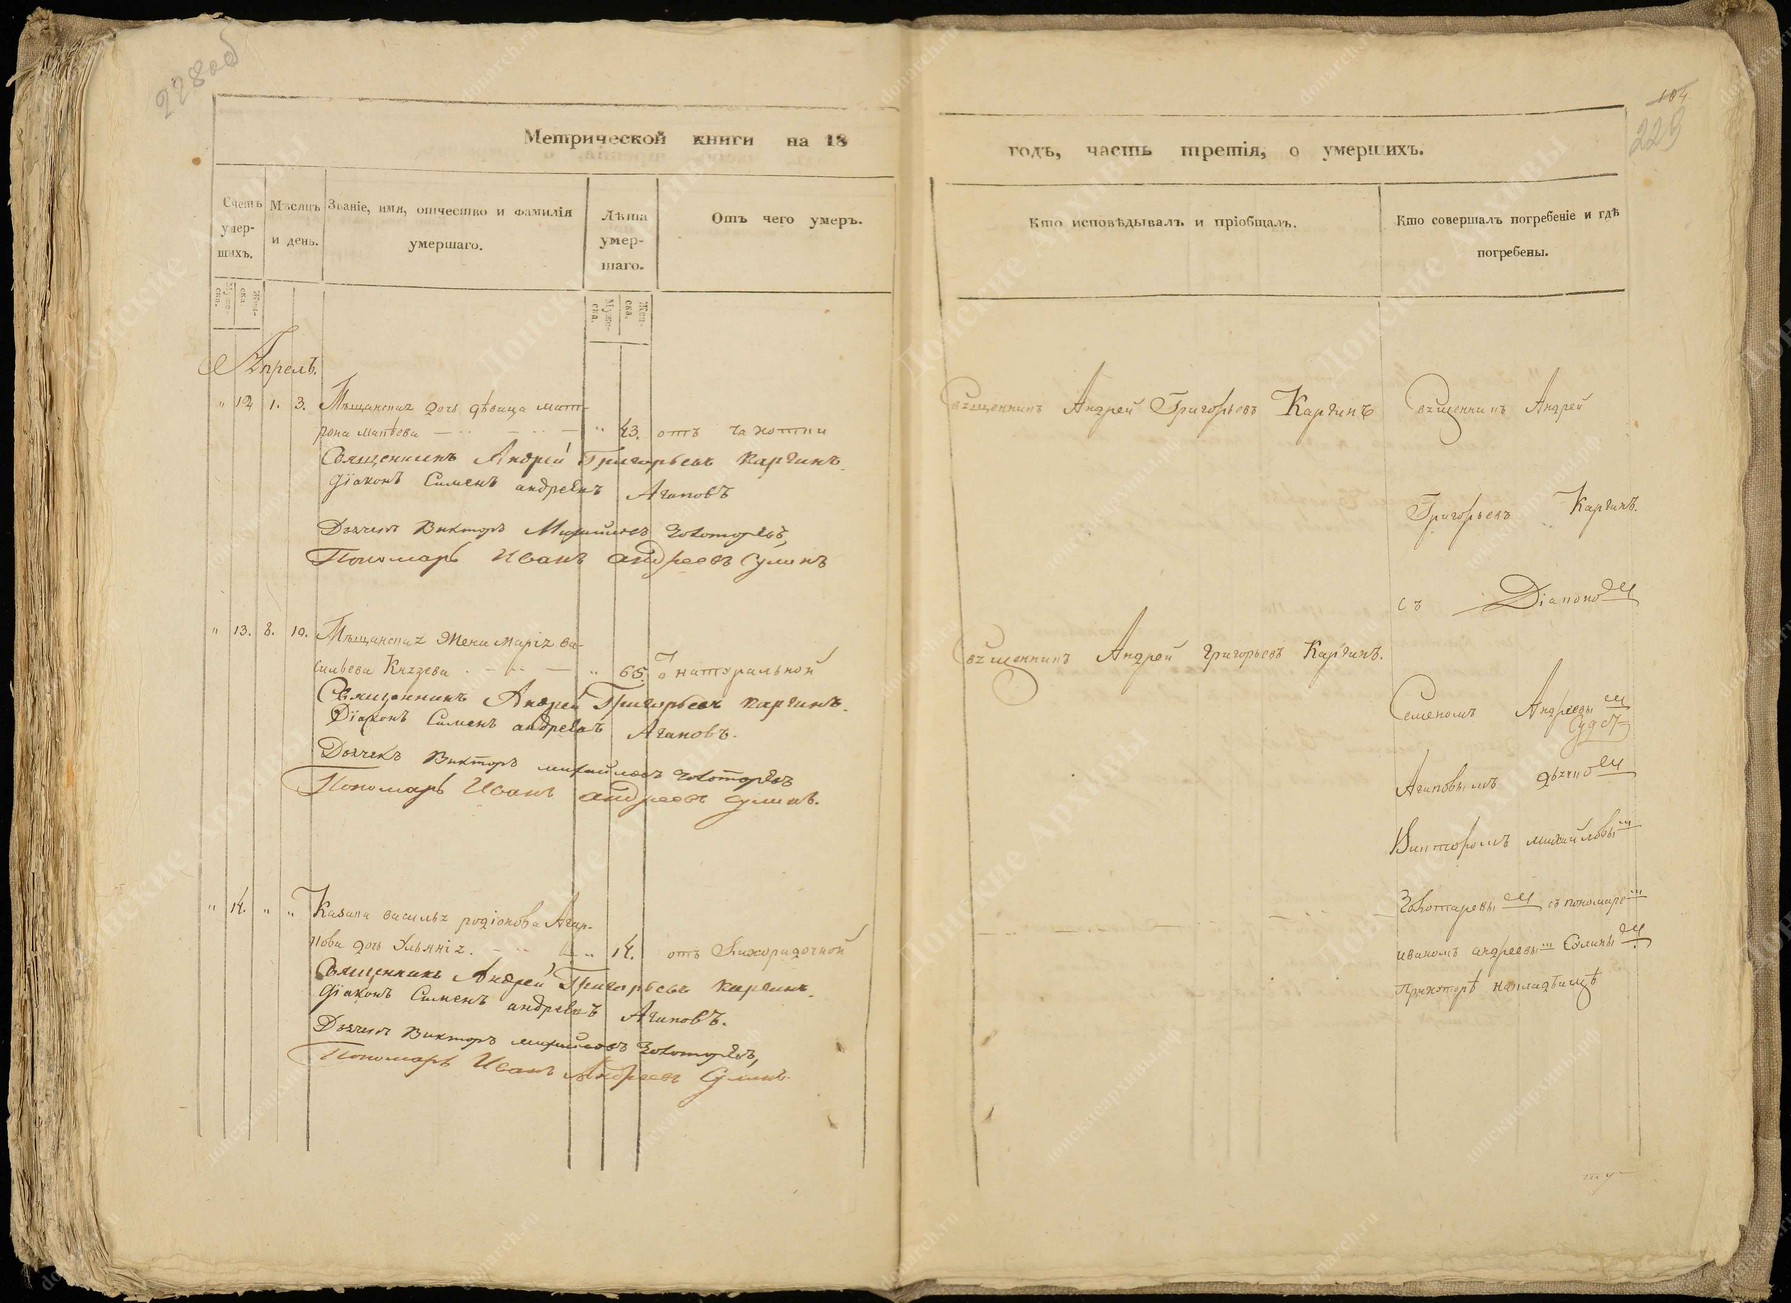 228 об
Метрической книги на 18
Счетъ умер-шихъ.
Мѣсяцъ и день.
Званіе, имя, отчество и фамилія умершаго.
Лѣта умер-шаго.
Отъ чего умеръ.
Муже-ска. Жен-ска.
Муже-ска. Жен-ска.
Апрель.
" 12 1. 3. Мѣщанска дочь дѣвица Мат-
рона Матвева " 43. отъ чахотки
Священникъ Андрей Григорьевъ Каргинъ.
Діаконъ Сименъ Андреевъ Агаповъ
Дьячекъ Викторъ Михайловъ Золотаревъ,
Пономарь Иванъ Андреевъ Сулинъ
" 13. 8. 10. Мѣщанска жена Марія Ва-
сильева Князева " 65. натуральной
Священникъ Андрей Григорьевъ Каргинъ.
Діаконъ Сименъ Андреевъ Агаповъ.
Дьячекъ Викторъ Михайловъ Золотаревъ
Пономарь Иванъ Андреевъ Сулинъ.
" 14. " " Казака Василья Родіонова Агап-
нова дочь Ульянія " 14. отъ лихорадочной
Священникъ Андрей Григорьевъ Каргинъ.
Діаконъ Сименъ Андреевъ Агаповъ.
Дьячекъ Викторъ Михайловъ Золотаревъ,
Пономарь Иванъ Андреевъ Сулинъ.
104
229
годъ, часть третія, о умершихъ.
Кто исповѣдывалъ и пріобщалъ.
Кто совершалъ погребеніе и гдѣ погребены.
Священникъ Андрей Григорьевъ Каргинъ
Священникъ Андрей
Григорьевъ Каргинъ.
съ Діакономъ
Священникъ Андрей Григорьевъ Каргинъ.
Семеномъ Андреевым
Агаповымъ дьячком
Викторомъ Михайловым
Золотаревым съ пономарем
Иваномъ Андреевым Сулиным
кладбищѣ